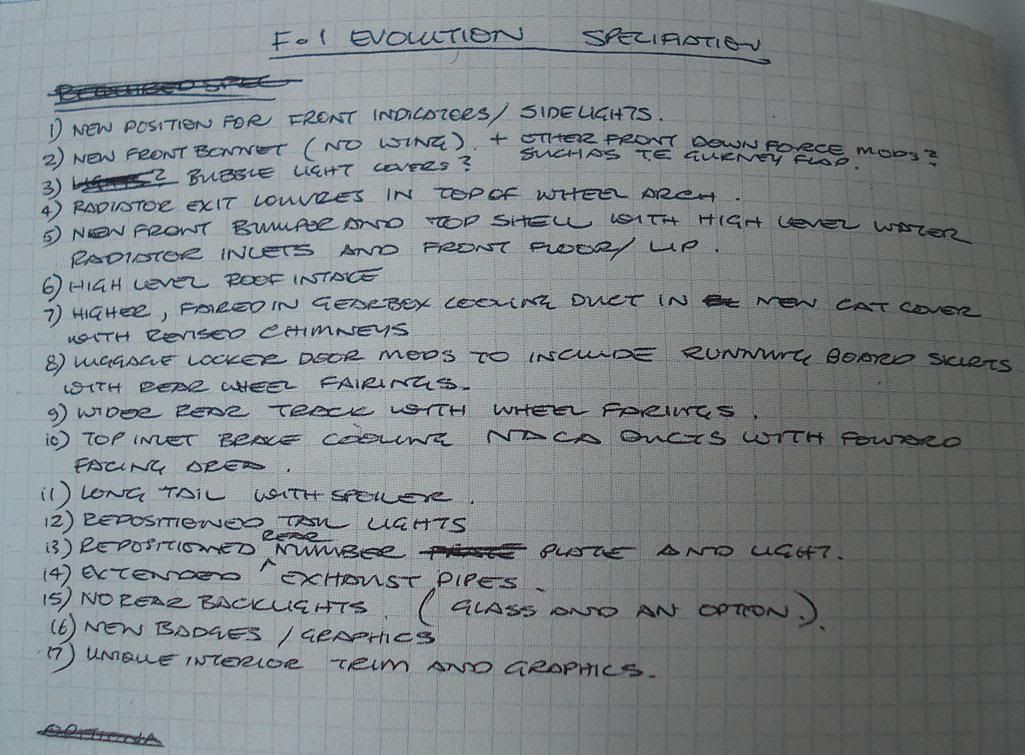 F-1 EVOLUTION SPECIFIATION
REQUIRED SPEC
1) NEW POSITION FOR FRONT INDICATORS/ SIDELIGHTS.
2) NEW FRONT BONNET (NO WING). + OTHER FRONT DOWNFORCE MODS?
SUCH AS TE GURNEY FLAP.
3) ? BUBBLE LIGHT COVERS?
4) RADIATOR EXIT LOUVRES IN TOP OF WHEEL ARCH.
5) NEW FRONT BUMPER AND TOP SHELL WITH HIGH LEVEL WATER
RADIATOR INLETS AND FRONT FLOOR/ LIP.
6) HIGH LEVEL ROOF INTAKE
7) HIGHER, FAIRED IN GEARBOX COOLING DUCT IN NEW CAT COVER
WITH REVISED CHIMNEYS
8) LUGGAGE LOCKER DOOR MODS TO INCLUDE RUNNING BOARD SKIRTS
WITH REAR WHEEL FAIRINGS.
9) WIDER REAR TRACK WITH WHEEL FARINGS.
10) TOP INLET BRAKE COOLING NACA DUCTS WITH FOWARD
FACING AREA.
11) LONG TAIL WITH SPOILER.
12) REPOSITIONED TAIL LIGHTS
13) REPOSITIONED REAR NUMBER PLATE AND LIGHT.
14) EXTENDED EXHAUST PIPES.
15) NO REAR BACKLIGHTS. (GLASS AND AN OPTION.).
16) NEW BADGES / GRAPHICS
17) UNIQUE INTERIOR TRIM AND GRAPHICS.
OPTIONA